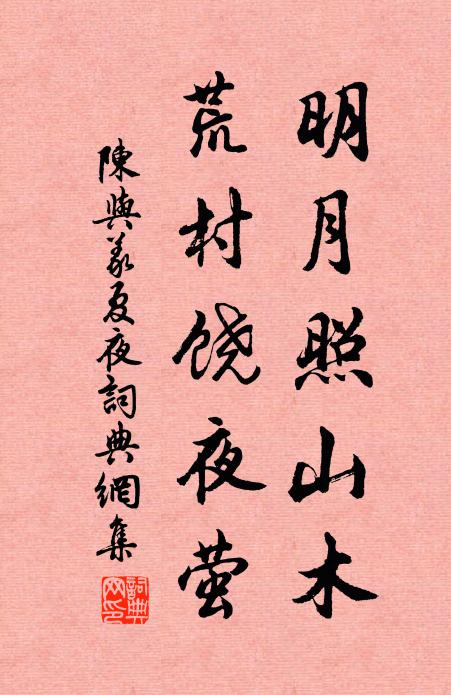 明月照山木
荒村饶夜萤
陳與義夏夜詞典網集
詞典網印